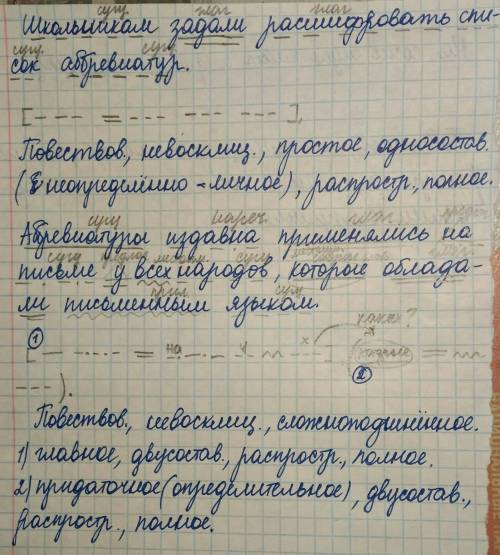 сущ. глаг глаг
Школьникам задали расшифровать спи-
сущ. сущ.
сок аббревиатур.
[--- = --- --- ---].
Повествов., невосклиц., простое, односостав.
(неопределённо-личное), распростр., полное.
сущ нареч. глаг
Абревиатуры издавна применялись на
сущ сущ
письме у всех народов, которые облада-
прил сущ.
ли письменным языком.
1 каких?
на у х которые
2
Повествов., невосклиц., сложноподчинённое.
1) главное, двусостав., распростр., полное.
2) придаточное (определительное), двусостав.,
распростр., полное.